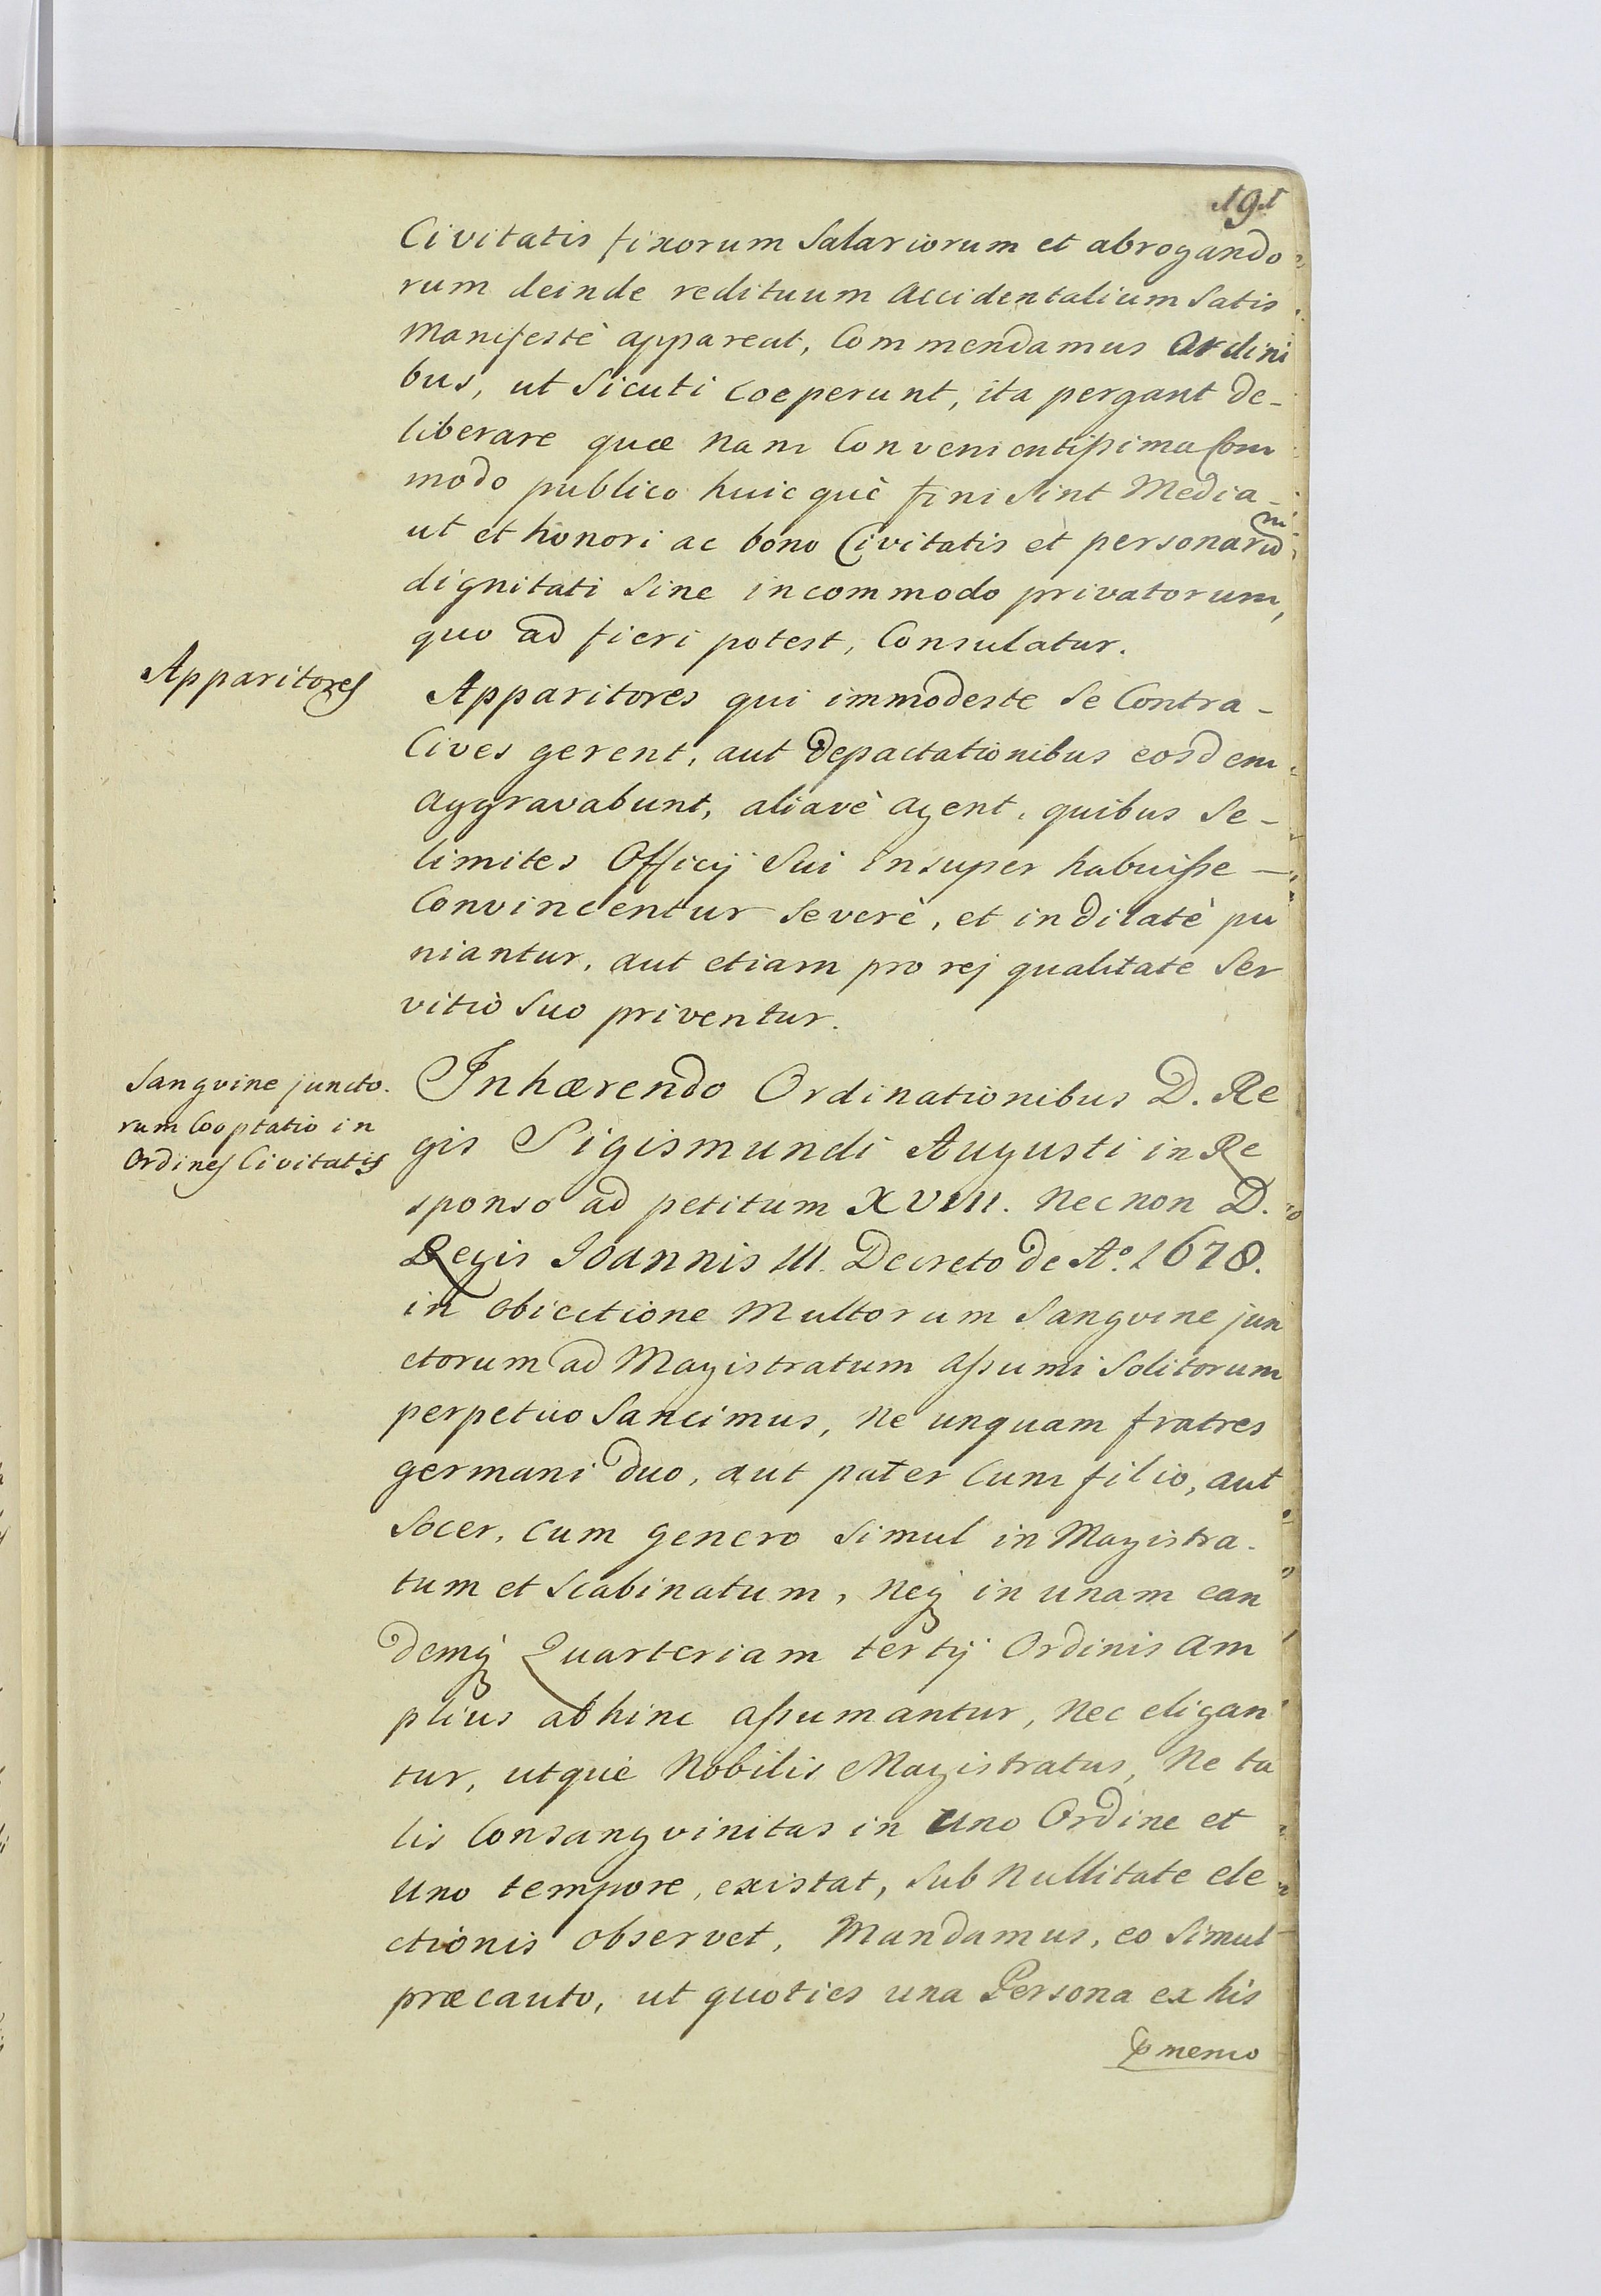 191
Civitatis fixorum Salariorum et abrogando
rum deinde redituum Accidentalium Satis
Manifestè appareat, Commendamus Ordini
bus, ut Sicuti Coeperunt, ita pergant de-
liberare quæ nam Convenientissima Com
modo publico huic què fini sint Media -
ut et honori ac bono Civitatis et personarum
dignitati Sine incommodo privatorum,
quo ad fieri potest, Consulatur.
Apparitores
Apparitores qui immodeste Se Contra -
Cives gerent, aut depactationibus eosdem
Aggravabunt, aliavè agent, quibus Se -
limites Officij Sui insuper habuisse —
Convincentur Severè, et indilatè pu
niantur, aut etiam pro rej qualitate Ser
vitiò Suo priventur.
Sangvine juncto-
rum Cooptatio in
Ordines Civitatis
Inhærendo Ordinationibus D. Re
gis Sigismundi Augusti in Re
sponso ad petitum XVIII. Nec non D.
Regis Joannis III. Decreto de Aº. 1678.
in obiectione Multorum Sangvine jun
ctorum ad Magistratum assumi Solitorum
perpetuo Sancimus, Ne unquam fratres
germani duo, aut pater Cum filio, aut
Socer, cum genero simul in Magistra-
tum et Scabinatum, Neq́ in unam ean
demq́ Quarteriam tertij Ordinis am
plius abhinc assumantur, Nec eligan
tur, utquè Nobilis Magistratus, Ne ta
lis Consangvinitas in Uno Ordine et
Uno tempore, existat, Sub Nullitate ele
ctionis observet, Mandamus, eo Simul
præcauto, ut quoties una Persona ex his